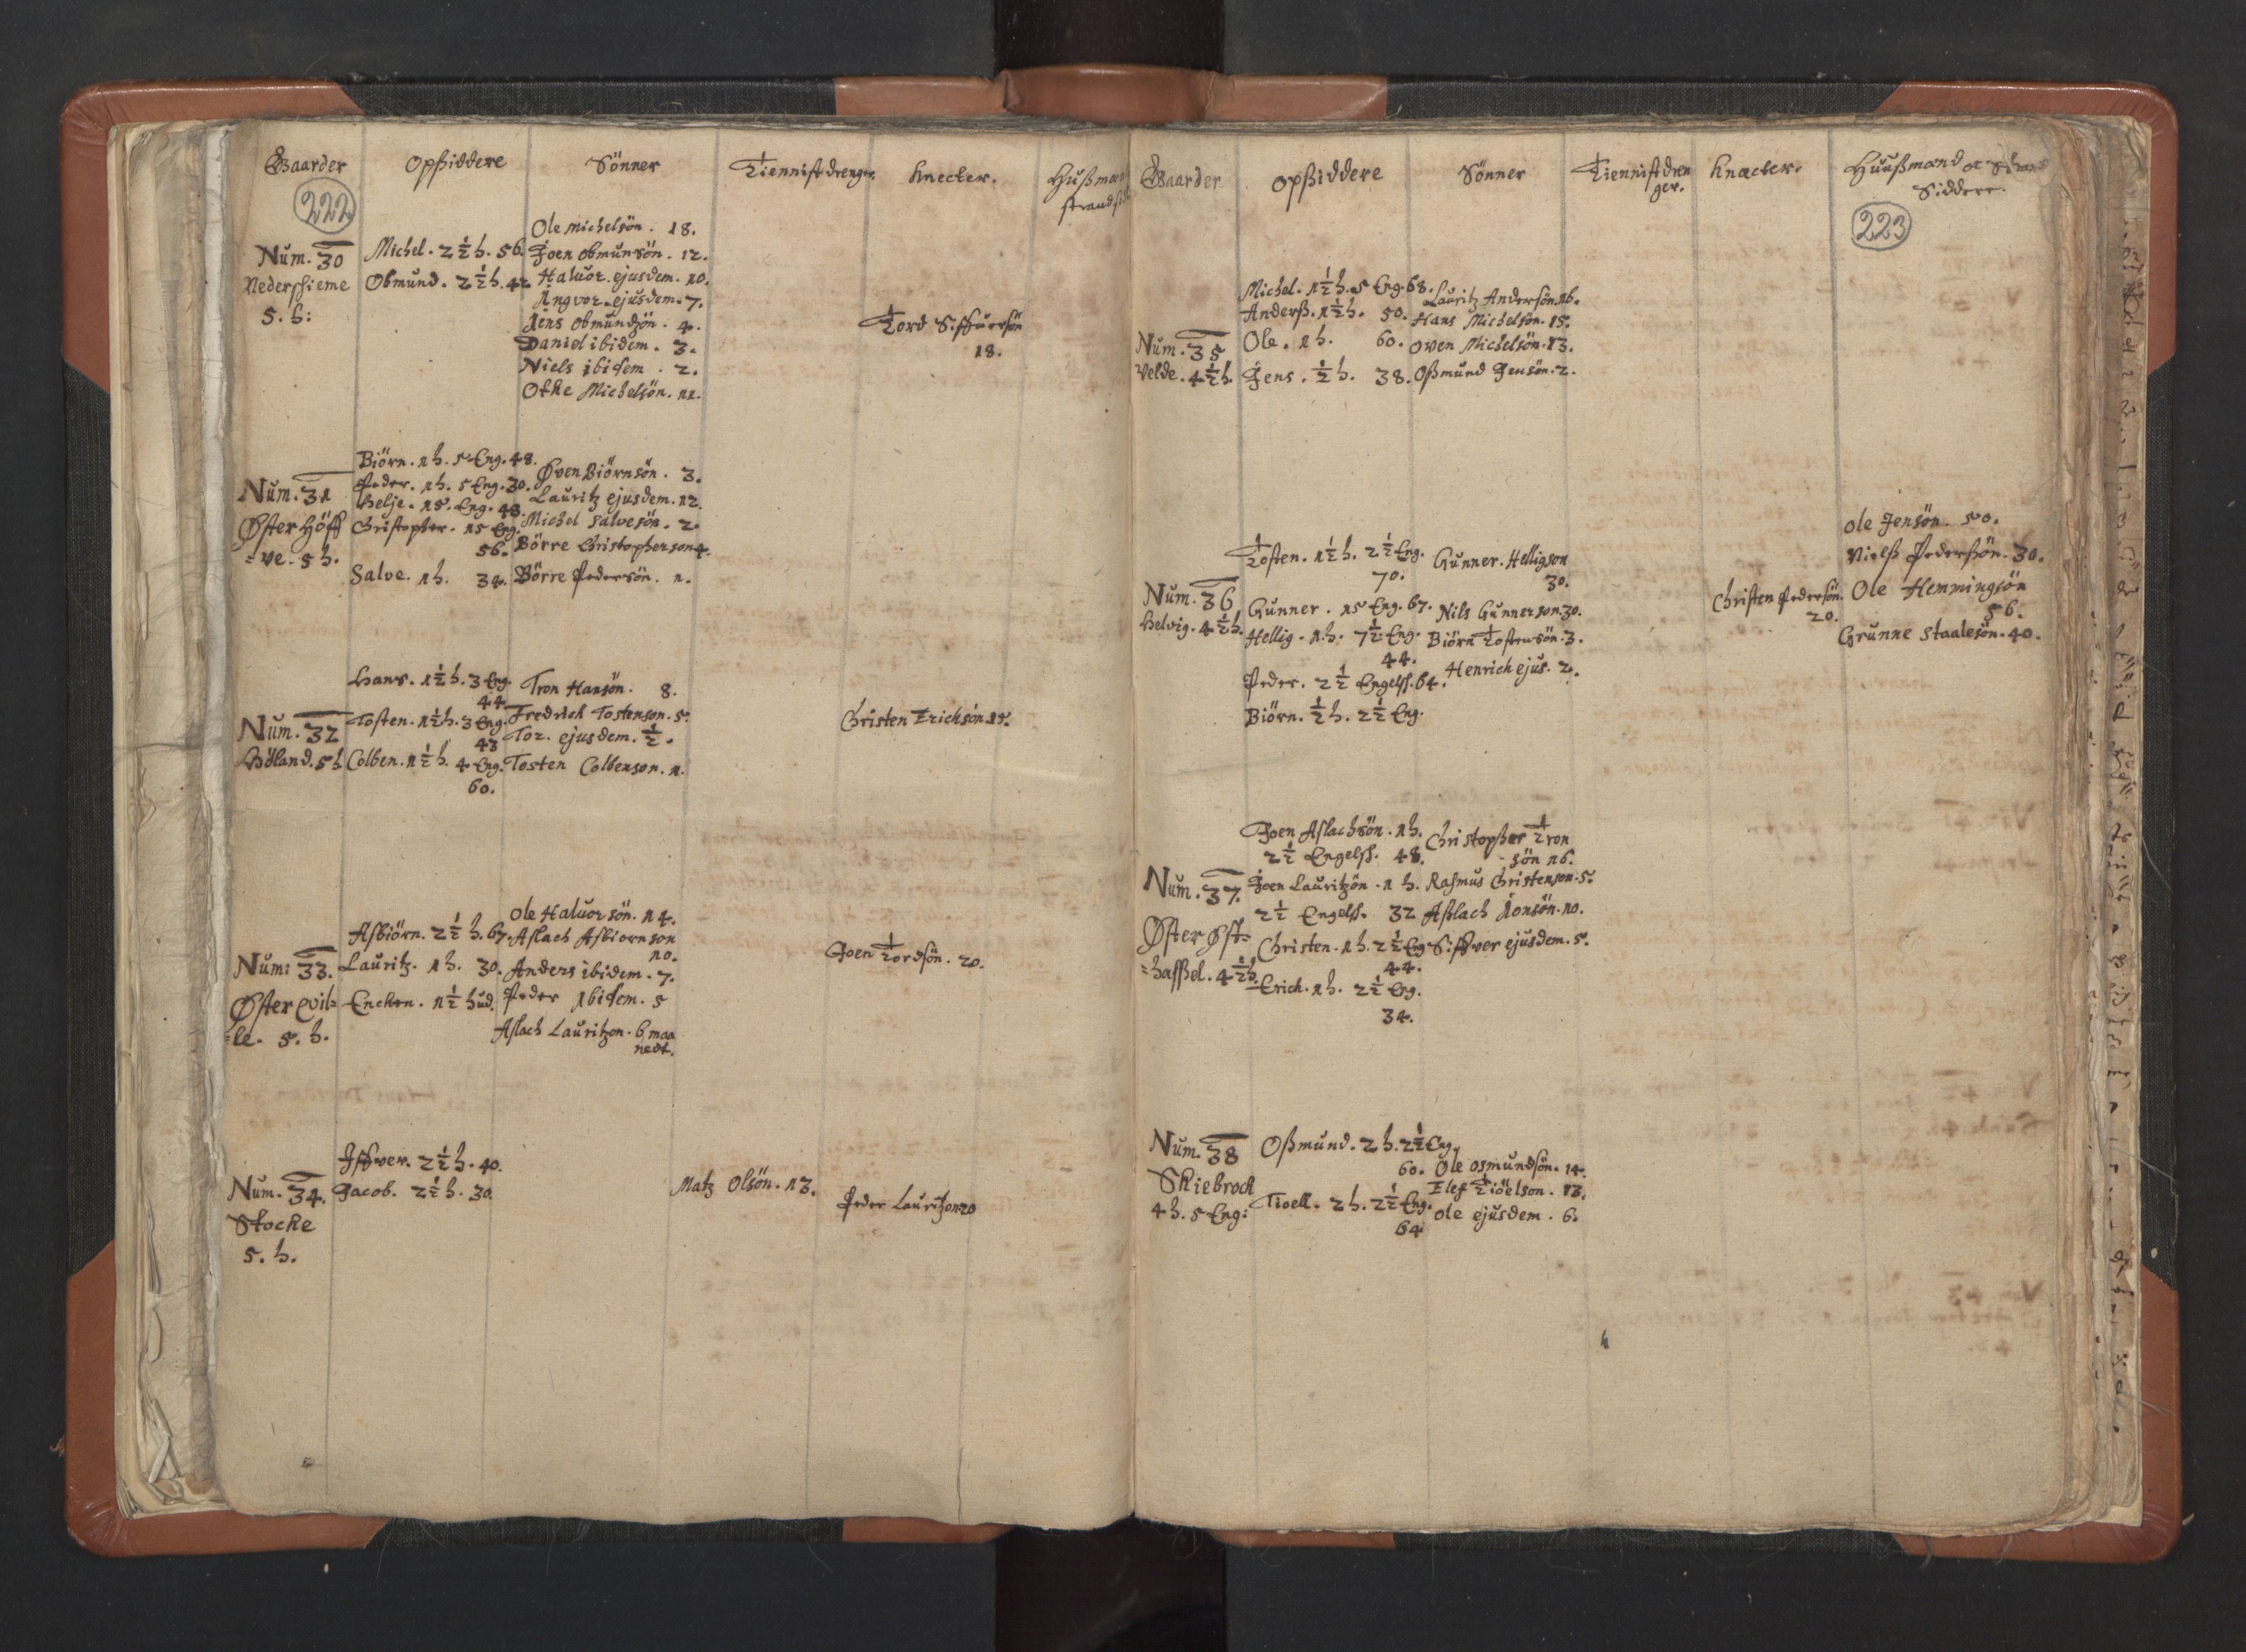 Gaarder
Opsiddere
Sönner
Tiennistdrenge.
Knecter.
Hußmæn
strandsi
222
Num. 30
Nederhieme
5. h:
Michel. 2½ h. 56.
Obmund. 2½ h. 42
Ole Michelsön. 18.
Joen Obmunsön. 12.
Haluor ejusdem. 10.
Ingvor ejusdem. 7.
Jens Obmundsön. 4.
Daniel ibidem. 3.
Niels ibidem. 2.
Othe Michelsön. 11.
Tord Siffuersön
18.
Num. 31
Øster Höff
=ve. 5 h.
Biörn. 1 h. 5 Eng. 48.
Peder. 1 h. 5 Eng. 30.
Helje. 15. Eng. 48.
Christopher. 15 Eng.
56.
Salve. 1 h. 34.
Øven Biörnsön. 3.
Lauritz ejusdem. 12.
Michel Salvesön. 2.
Börre Christopherson 4.
Börre Pedersön. 1.
Num. 32
Höland. 5 h
Hans. 1½ h. 3 Eng.
44.
Tosten. 1½ h. 3 Eng.
43
Colben. 1½ h. 4 Eng.
60.
Tron Hansön. 8.
Fredrich Tostenson. 5.
Tor. ejusdem. ½.
Tosten Colbenson. 1.
Christen Erichsön. 18.
Num: 33.
Øster Qvil=
=le. 5. h.
Asbiörn. 2½ h. 67.
Lauritz. 1 h. 30.
Encken. 1½ hud.
Ole Haluorsön. 14.
Aslach Asbiornson
10.
Anders ibidem. 7.
Peder ibidem. 5
Aslach Lauritzon. 6 maa
nedt.
Joen Tordsön. 20.
Num. 34.
Stocke
5. h.
Iffver. 2½ h. 40.
Jacob. 2½ h. 30.
Matz Olsön. 13.
Peder Lauritzon 20
Gaarder
Opsiddere
Sönner
Tiennistdren
ger.
Knæcter.
Huußmænd oc Strand
Siddere.
223
Num. 35
Velde. 4½ h.
Michel. 1½ h. 5 Eng. 68.
Anderß. 1½ h. 50.
Ole. 1 h. 60.
Jens. ½ h. 38.
Lauritz Andersön. 16.
Hans Michelsön. 15.
Oven Michelsön. 13.
Oßmund Jensön. 2.
Num. 36
Helvig. 4½ h.
Tosten. 1½ h. 2½ Eng.
70.
Gunner. 15 Eng. 67.
Hellig. 1 h. 7½ Eng.
44.
Peder. 2½ Engelsk. 64.
Biörn. ½ h. 2½ Eng.
Gunner. Helligson
30.
Nils Gunnerson 30.
Biörn Tostensön. 3.
Henrich ejus. 2.
Christen Pedersön.
20.
Ole Jensön. 50.
Nielß Pederßön. 30.
Ole Hemmingsön
56.
Grunne Staalesön. 40.
Num. 37.
Øster Øst=
=haßel. 4½ h.
Joen Aslachsön. 1 h.
2½ Engelsk. 48.
Joen Lauritzön. 1 h.
2½ Engelsk. 32
Christen. 1 h. 2½ Eng
44.
Erich. 1 h. 2½ Eng.
34.
Christopher Tron
sön 16.
Rasmus Christenson. 5.
Aßlach Jonsön. 10.
Siffver ejusdem. 5.
Num. 38
Skiebroch
4 h. 5 Eng:
Oßmund. 2 h. 2½ Eng.
60.
Tioell. 2 h. 2½ Eng.
64
Ole Osmundsön. 14.
Elef Tiöelson. 13.
Ole ejusdem. 6.